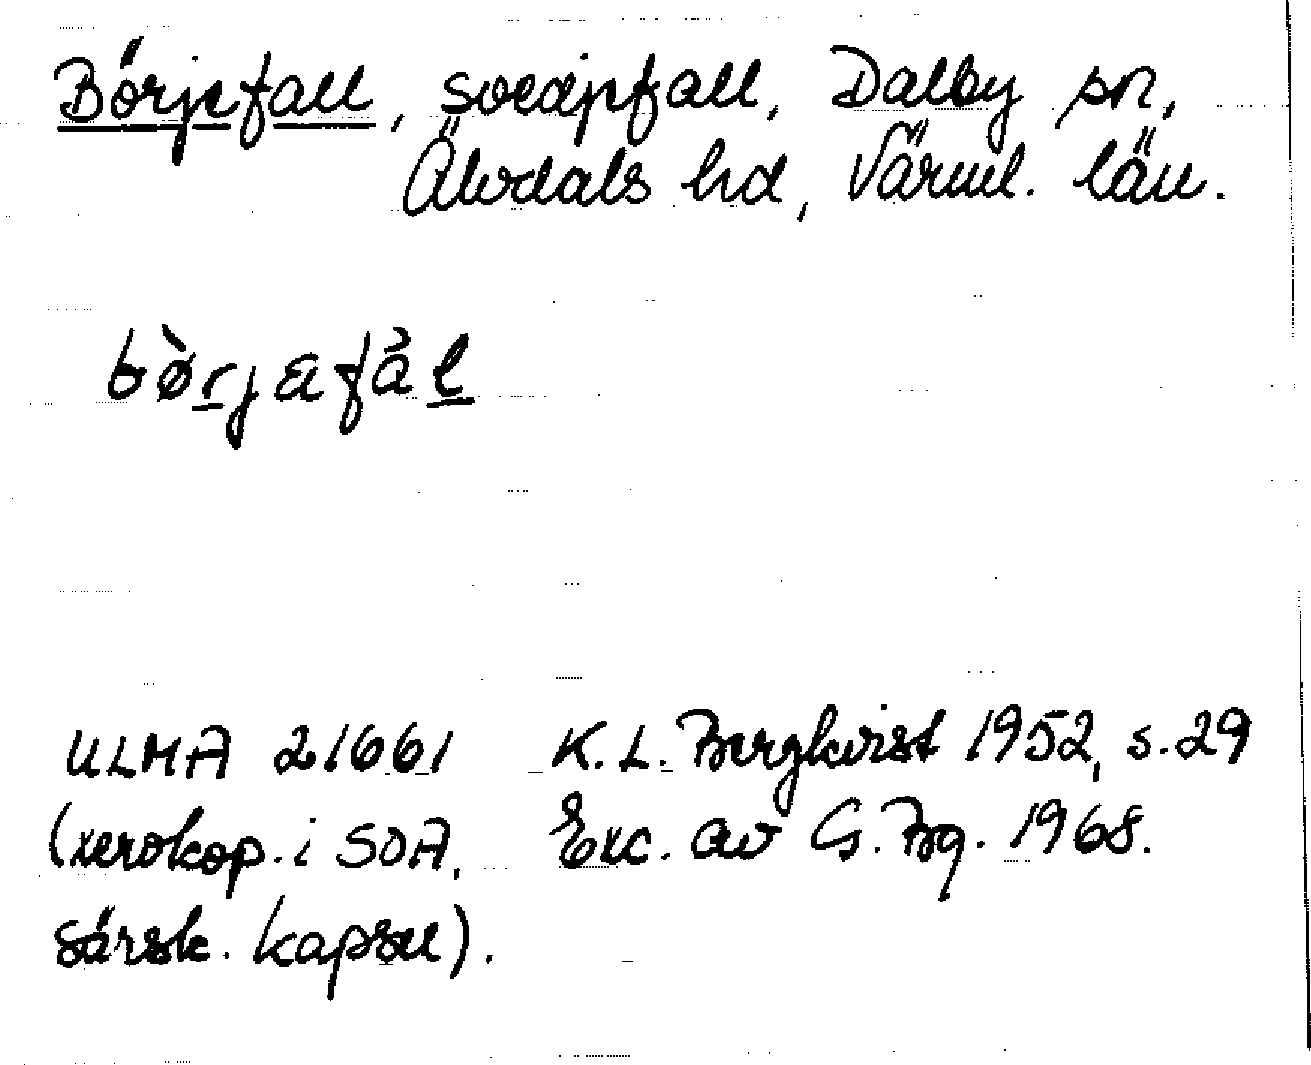 Börjefall, svedjefall, Dalby sn,
Älvdals hd, Värml. län.
børjafål
ULMA 21661 K. L. Bergkvist 1952, s. 29
(xerokop. i SOA, Exc. av G. Bg. 1968.
särsk. kapsel).